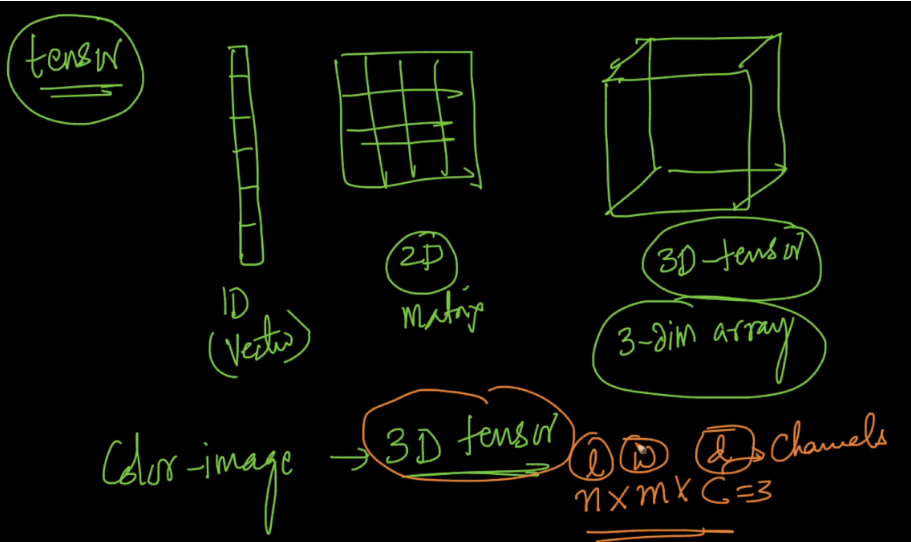 tensor
1D
(Vector)
2D
Matrix
3D-tensor
3-dim array
Color-image → 3D tensor
l w d → Channels
n x m x C=3